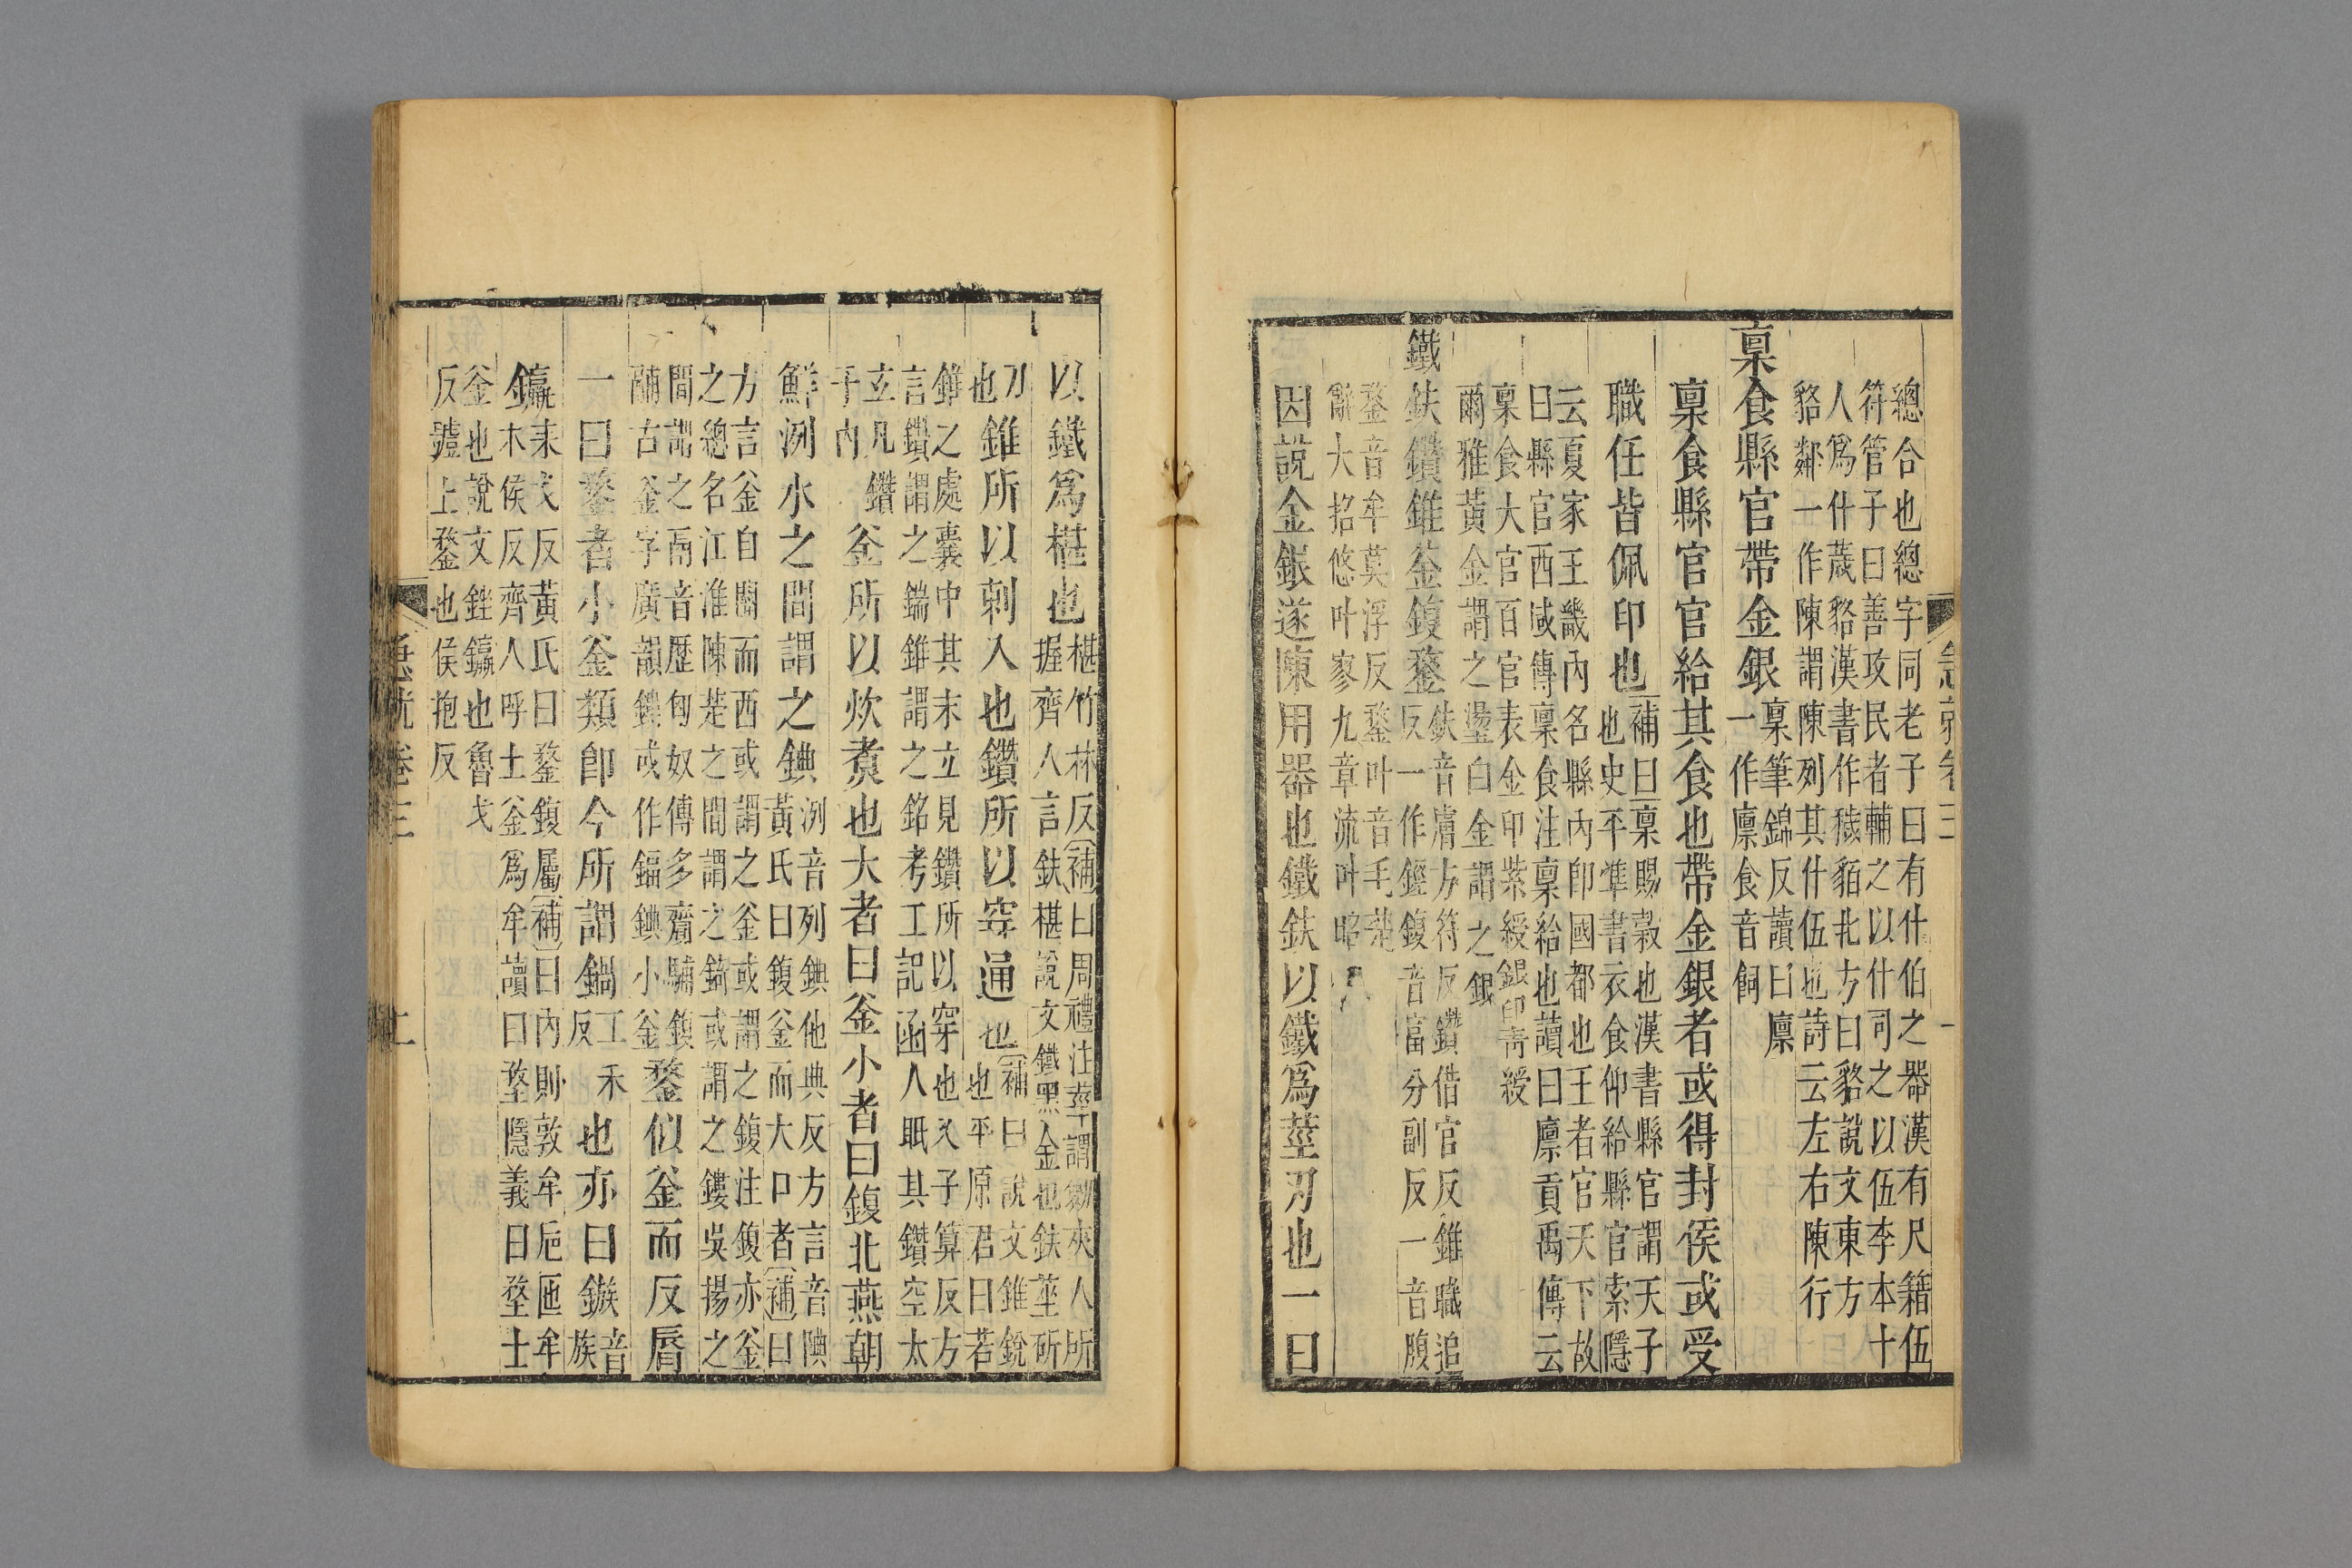 總合也總字同老子曰有什伯之器漢有尺籍伍
符管子曰善攻民者輔之以什司之以伍李本十
人為什薉貉漢書作穢貊北方曰貉說文東方
貉鄰一作陳謂陳列其什伍也詩云左右陳行
稟食縣官帶金銀
稟筆錦反讀曰廪
一作廪食音飼
稟食縣官官給其食也帶金銀者或得封侯或受
職任皆佩印也
補曰稟賜穀也漢書縣官謂天子
也史平準書衣食仰給縣官索隱
云夏家王畿內名縣內即國都也王者官天下故
曰縣官西域傳稟食注稟給也讀曰廪貢禹傳云
稟食大官百官表金印紫綬銀印靑綬
爾雅黃金謂之璗白金謂之銀
鐵鈇鑽錐釜鍑鍪
鈇音膚方符反鑽借官反錐職追
反一作鏗鍑音富分副反一音腹
鍪音牟莫浮反鍪叶音毛楚
辭大招悠叶寥九章流叶昭
因說金銀遂陳用器也鐵鈇以鐵爲莝刃也一曰
以鐵爲椹也
椹竹林反補曰周禮注莝謂芻夾人所
握齊人言鈇椹說文鐵黑金也鈇莝斫
刀
也
錐所以刺入也鑽所以穿通也
補曰說文錐銳
也平原君曰若
錐之處囊中其末立見鑽所以穿也久子算反方
言鑽謂之鍴錐謂之銘考工記函人眡其鑽空太
玄凡鑽
于內
釜所以炊煑也大者曰釜小者曰鍑北燕朝
鮮洌水之間謂之錪
洌音列錪他典反方言音腆
黃氏曰鍑釜而大口者補曰
方言釜自關而西或謂之釜或謂之鍑注鍑亦釜
之總名江淮陳楚之間謂之錡或謂之鏤吳揚之
間謂之鬲音歷匈奴傳多齎鬴鍑
鬴古釜字廣韻鍑或作鍢錪小釜
鍪似釜而反脣
一曰鍪者小釜類即今所謂鍋
工禾
反
也亦曰鏃
音
族
鑹耒戈反黃氏曰鍪鍑屬補曰內則敦牟巵匜牟
木侯反齊人呼土釜爲牟讀曰堥隱義曰堥土
釜也說文銼鑹也魯戈
反䥶上鍪也侯抱反
急就卷三
急就卷三